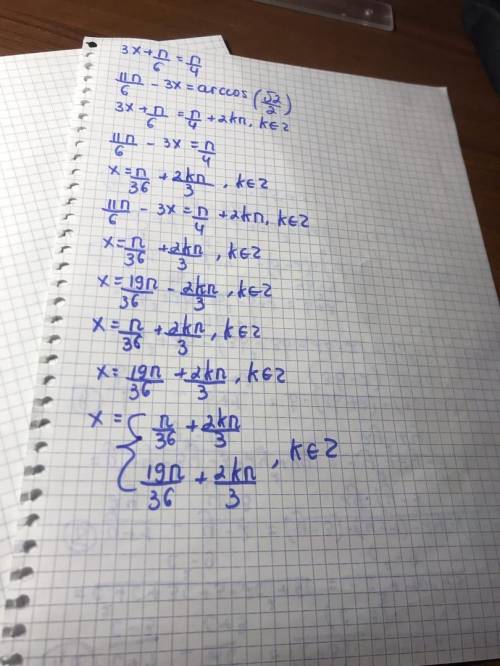 3x + π/6 = π/4
11π/6 - 3x = arccos(√2/2)
3x + π/6 = π/4 + 2kπ, k∈Z
11π/6 - 3x = π/4
x = π/36 + 2kπ/3, k∈Z
11π/6 - 3x = π/4 + 2kπ, k∈Z
x = π/36 + 2kπ/3, k∈Z
x = 19π/36 - 2kπ/3, k∈Z
x = π/36 + 2kπ/3, k∈Z
x = 19π/36 + 2kπ/3, k∈Z
x = { π/36 + 2kπ/3
19π/36 + 2kπ/3, k∈Z